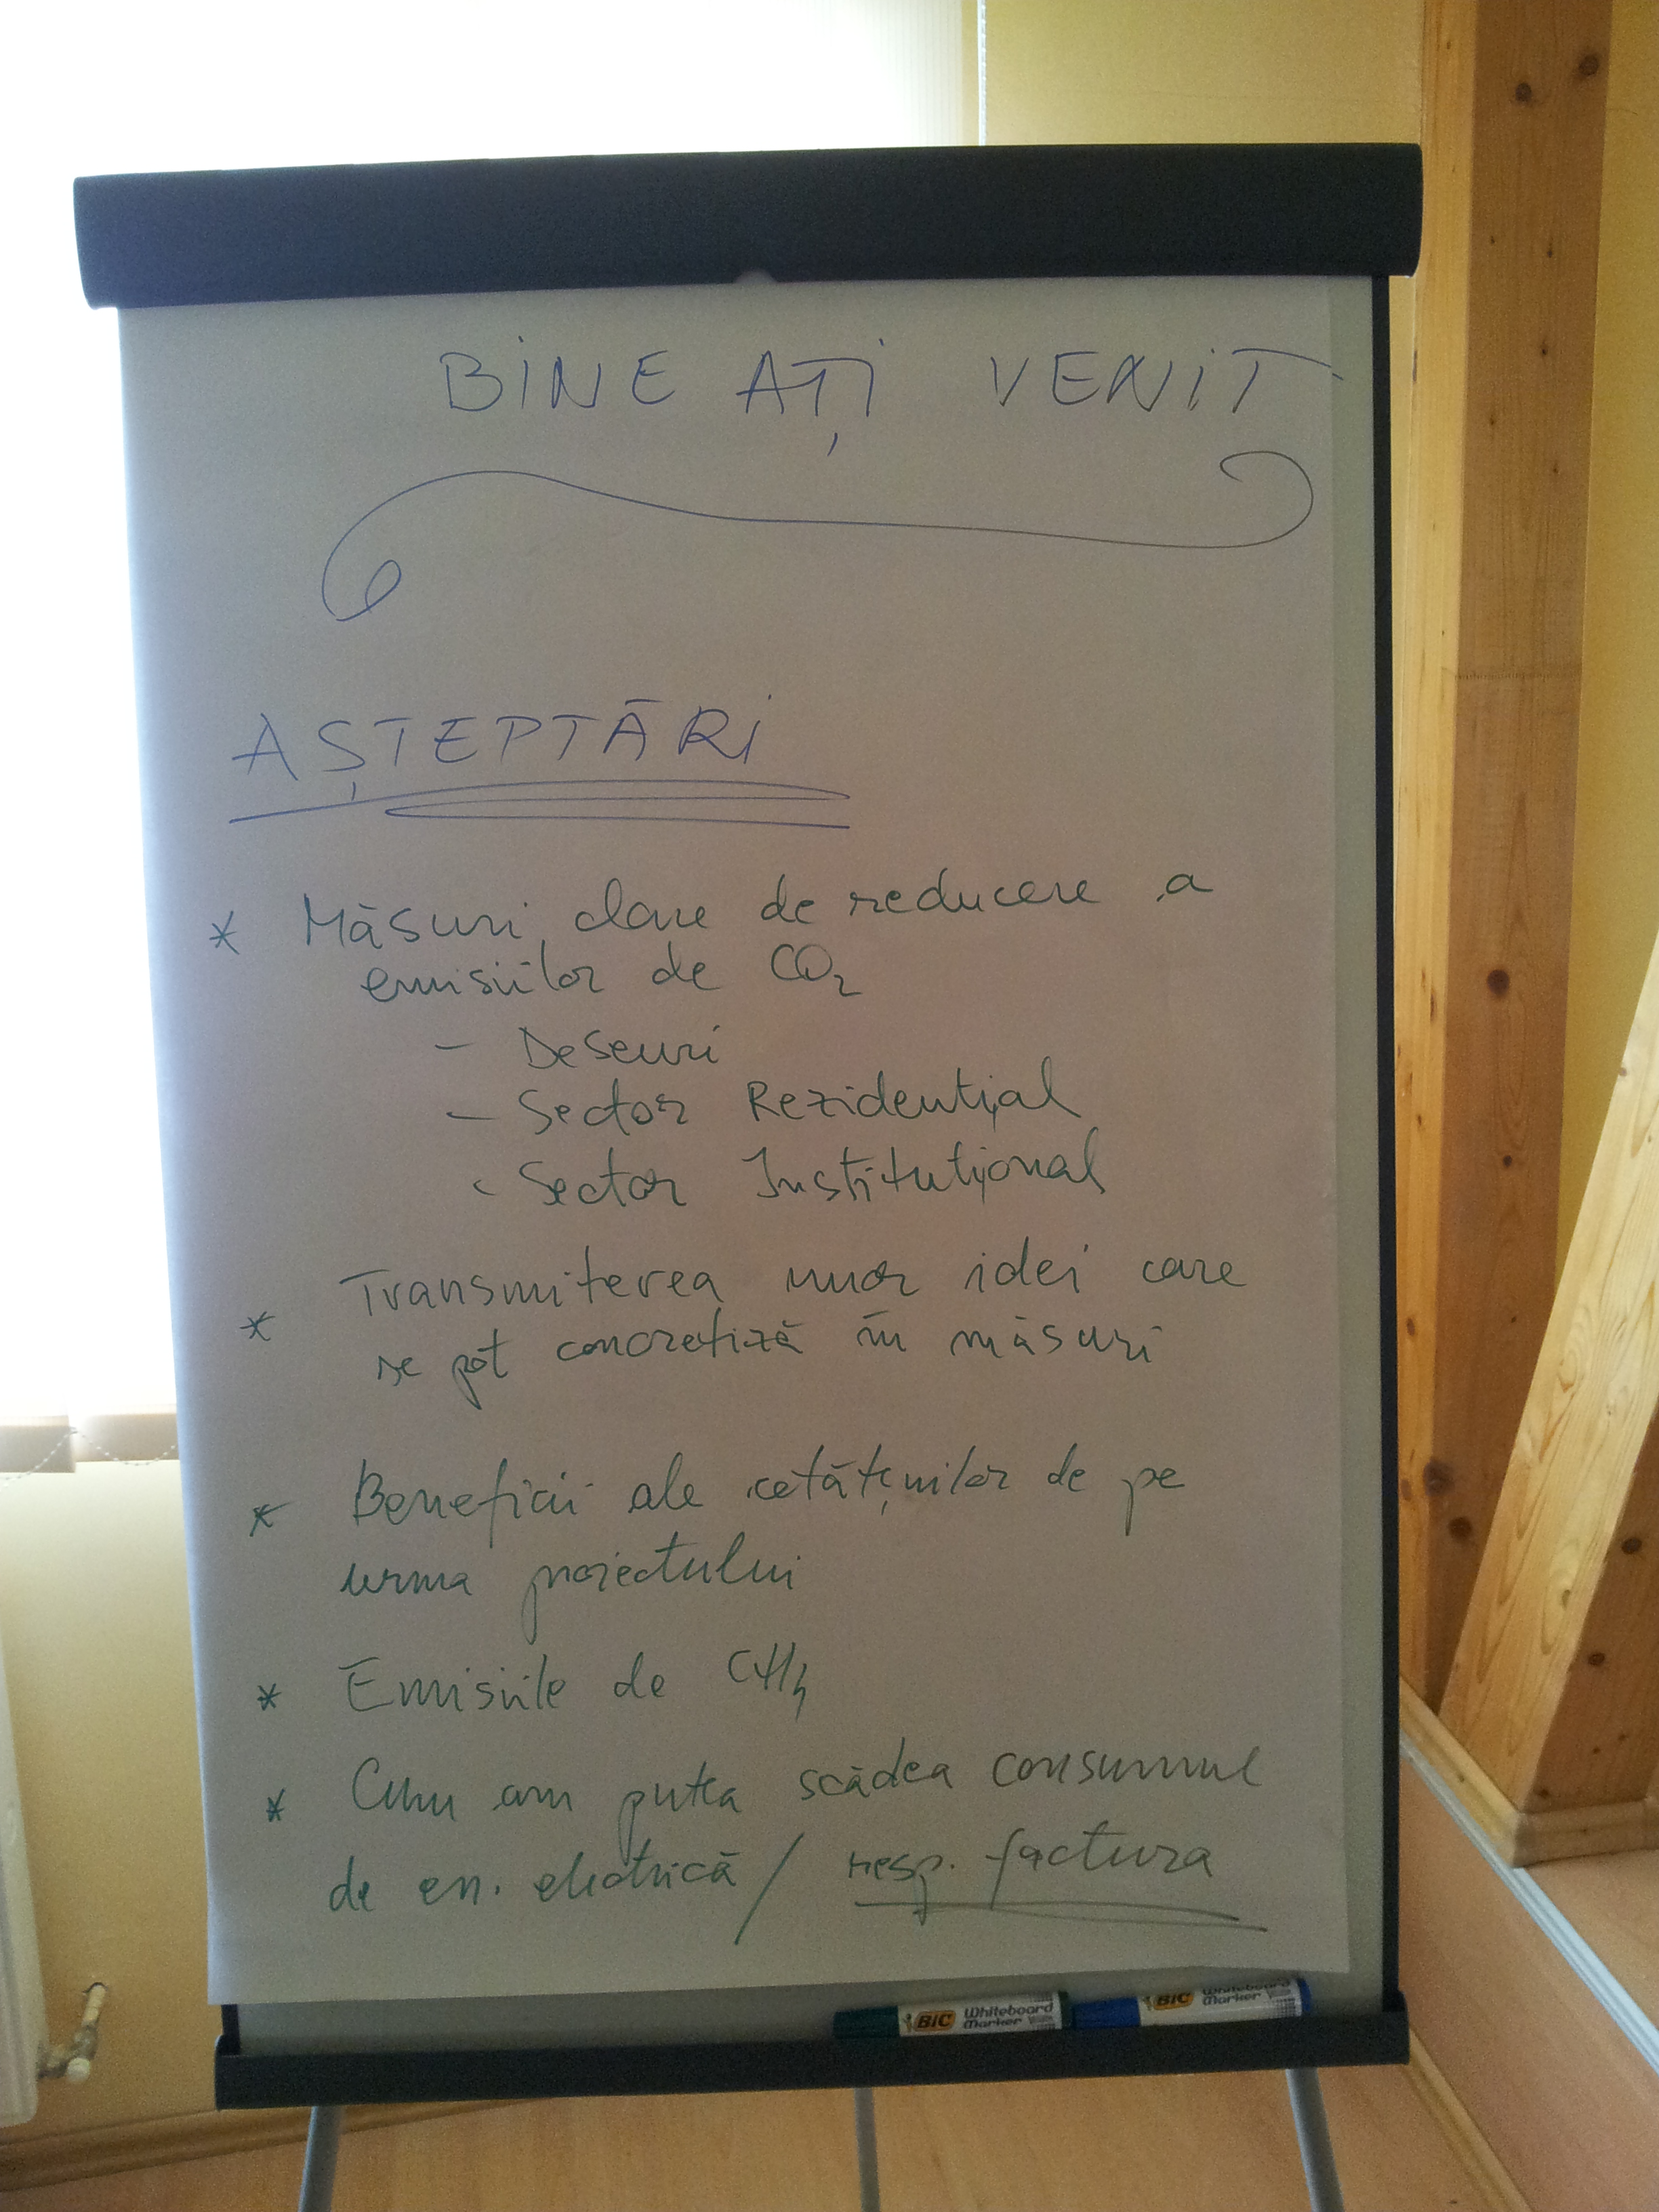 BINE AȚI VENIT
AȘTEPTĂRI
* Măsuri clare de reducere a
emisiilor de CO₂
- Deseuri
- Sector Rezidențial
- Sector Instituțional
* Transmiterea unor idei care
se pot concretiză în măsuri
* Beneficii ale cetățenilor de pe
urma proiectului
* Emisiile de CH₄
* Cum am putea scădea consumul
de en. electrică / resp. factura
BIC Whiteboard Marker
BIC Whiteboard Marker